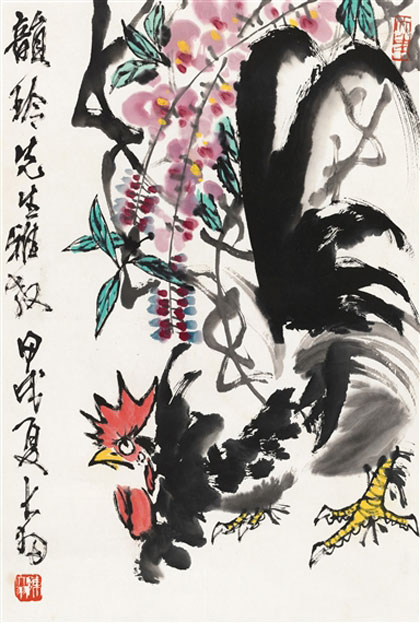 韻玲先生雅教甲戌夏大羽